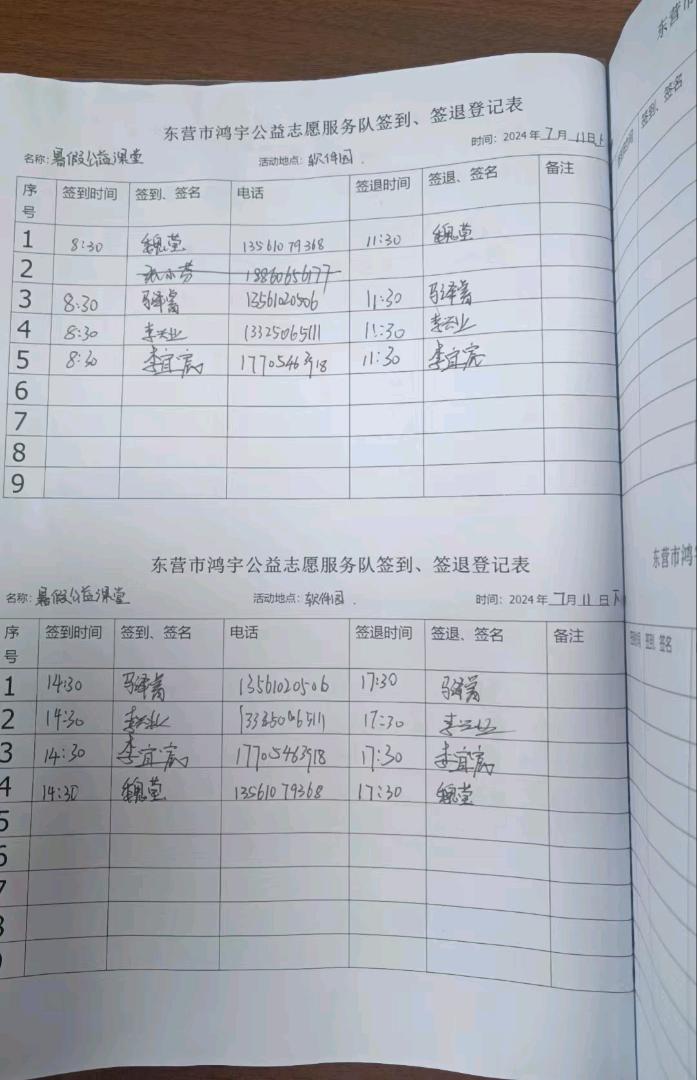 东营市鸿宇公益志愿服务队签到、签退登记表
名称：暑假公益课堂 活动地点：软件园. 时间：2024年7月11日上
序号 签到时间 签到、签名 电话 签退时间 签退、签名 备注
1 8:30 魏莹 13561079368 11:30 魏莹
2 18860656177
3 8:30 马泽蕾 13561020506 11:30 马泽蕾
4 8:30 李兴业 13325065111 11:30 李兴业
5 8:30 李宜宸 17705463918 11:30 李宜宸
6
7
8
9
东营市鸿宇公益志愿服务队签到、签退登记表
名称：暑假公益课堂 活动地点：软件园. 时间：2024年7月11日下
序号 签到时间 签到、签名 电话 签退时间 签退、签名 备注
1 14:30 马泽蕾 13561020506 17:30 马泽蕾
2 14:30 李兴业 13325065111 17:30 李兴业
3 14:30 李宜宸 17705463918 17:30 李宜宸
4 14:30 魏莹 13561079368 17:30 魏莹
5
6
7
8
东营市
签到、签名
东营市鸿
签到、签名